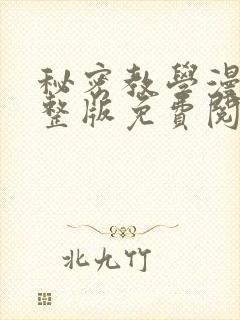 秘密教學漫
整版免費閱
北九竹